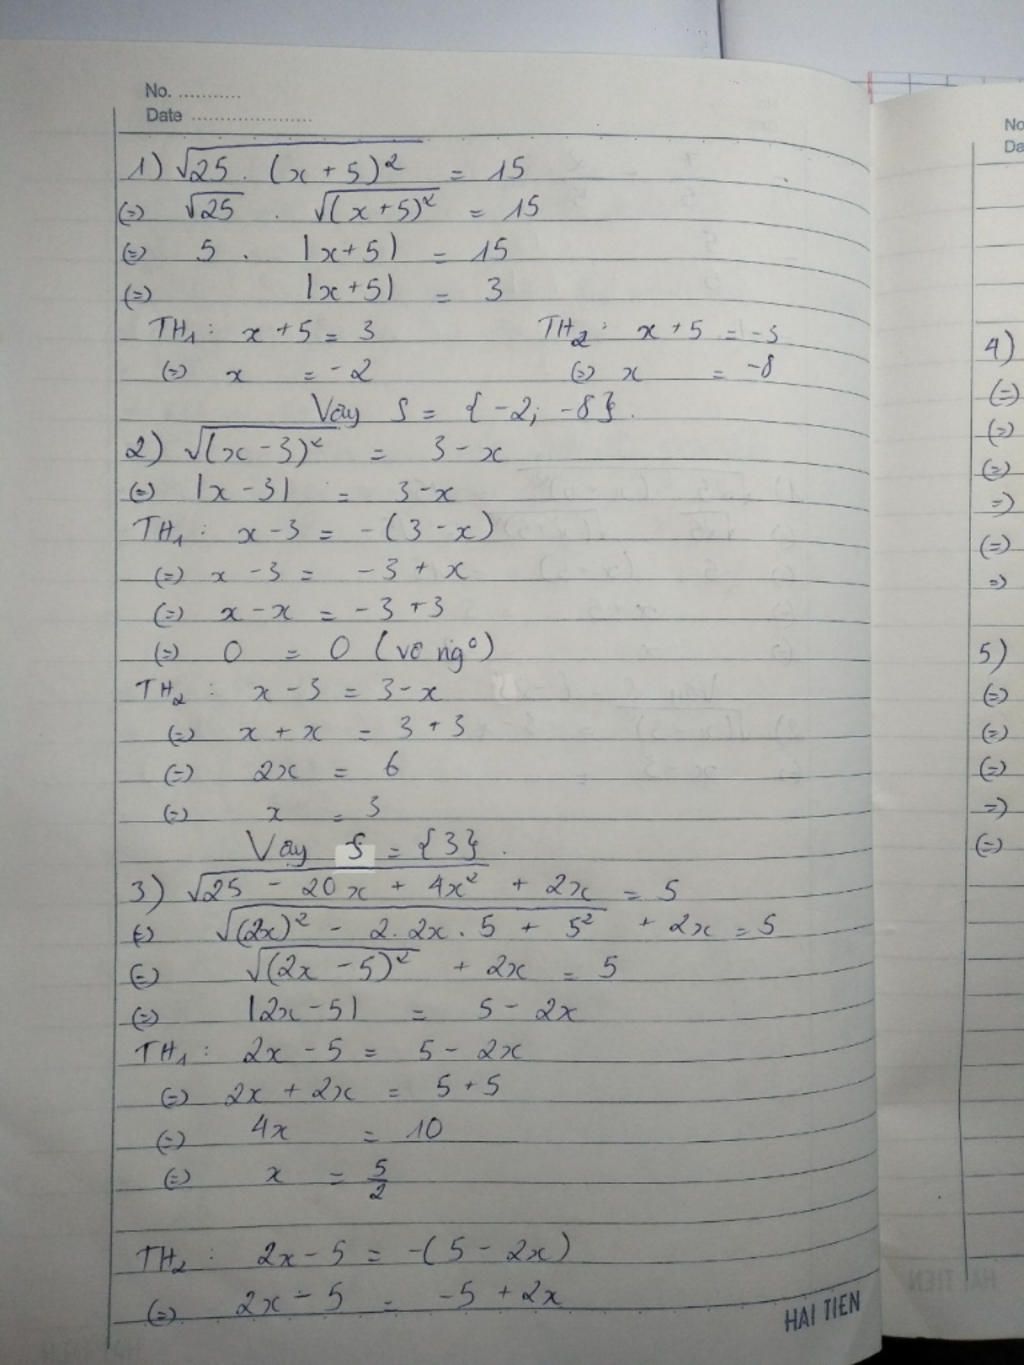 No. ...........
Date .....................
1) √25 . (x + 5)² = 15
(=) √25 . √(x+5)² = 15
(=) 5 . |x+5| = 15
(=) |x+5| = 3
TH₁ : x + 5 = 3 TH₂ : x + 5 = -3
(=) x = -2 (=) x = -8
Vậy S = {-2; -8}.
2) √(x-3)² = 3-x
(=) |x-3| = 3-x
TH₁ : x-3 = -(3-x)
(=) x-3 = -3+x
(=) x-x = -3+3
(=) 0 = 0 (vô ng⁰)
TH₂ : x-3 = 3-x
(=) x + x = 3+3
(=) 2x = 6
(=) x = 3
Vậy S = {3}.
3) √25 - 20x + 4x² + 2x = 5
(=) √(2x)² - 2.2x.5 + 5² + 2x = 5
(=) √(2x-5)² + 2x = 5
(=) |2x-5| = 5-2x
TH₁ : 2x-5 = 5-2x
(=) 2x + 2x = 5+5
(=) 4x = 10
(=) x = 5/2
TH₂ : 2x-5 = -(5-2x)
(=) 2x-5 = -5+2x
HAI TIEN
No
Da
4)
(=)
(=)
(=)
=)
(=)
=)
5)
(=)
(=)
(=)
=)
(=)